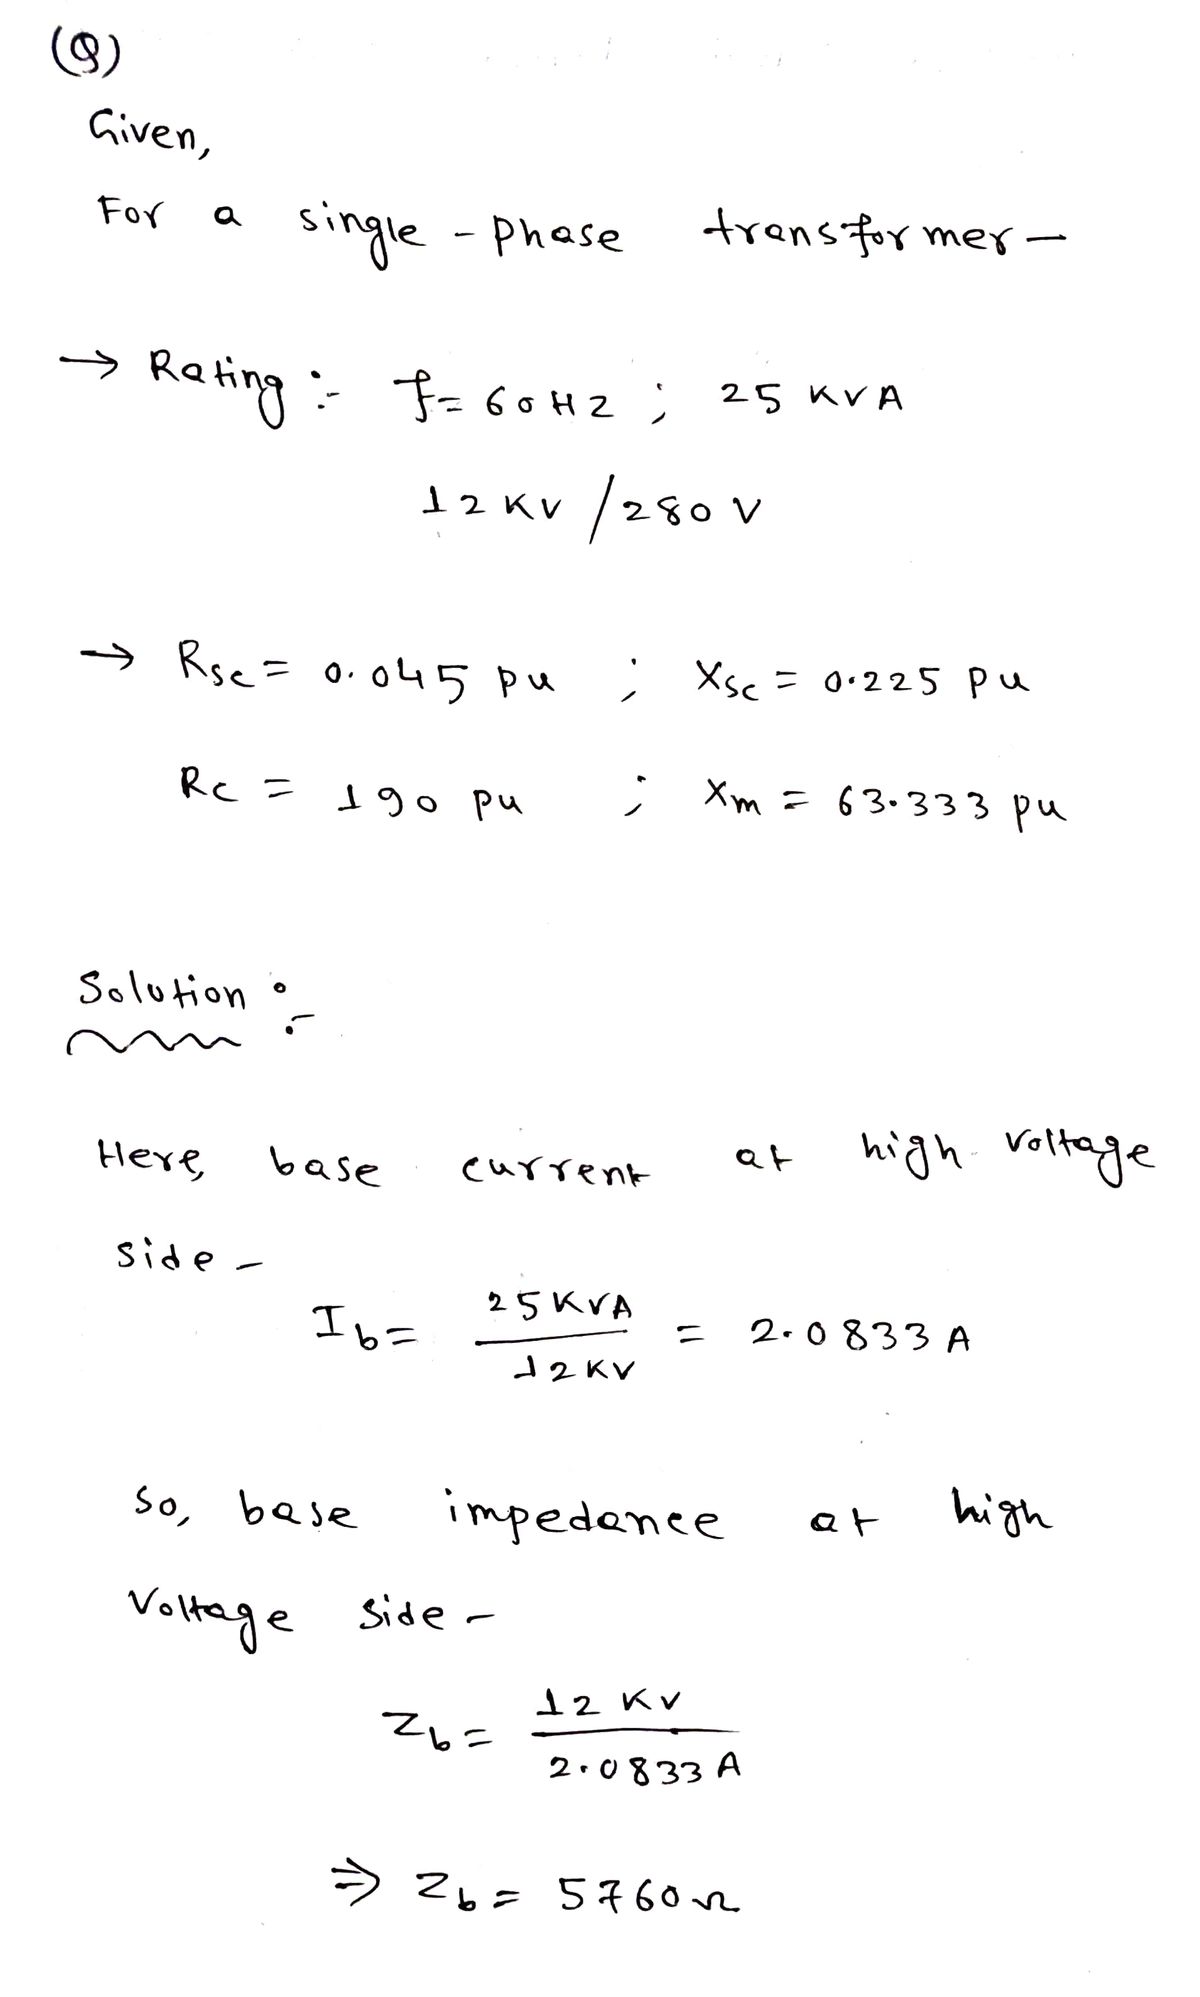 (Q)
Given,
For a single - Phase transformer —
→ Rating :- f = 60HZ ; 25 KVA
12 KV / 280 V
→ Rsc = 0.045 pu ; Xsc = 0.225 pu
Rc = 190 pu ; Xm = 63.333 pu
Solution :-
Here, base current at high voltage
side -
Ib = 25KVA / 12KV = 2.0833 A
So, base impedance at high
Voltage side -
Zb = 12 KV / 2.0833 A
⇒ Zb = 5760 Ω